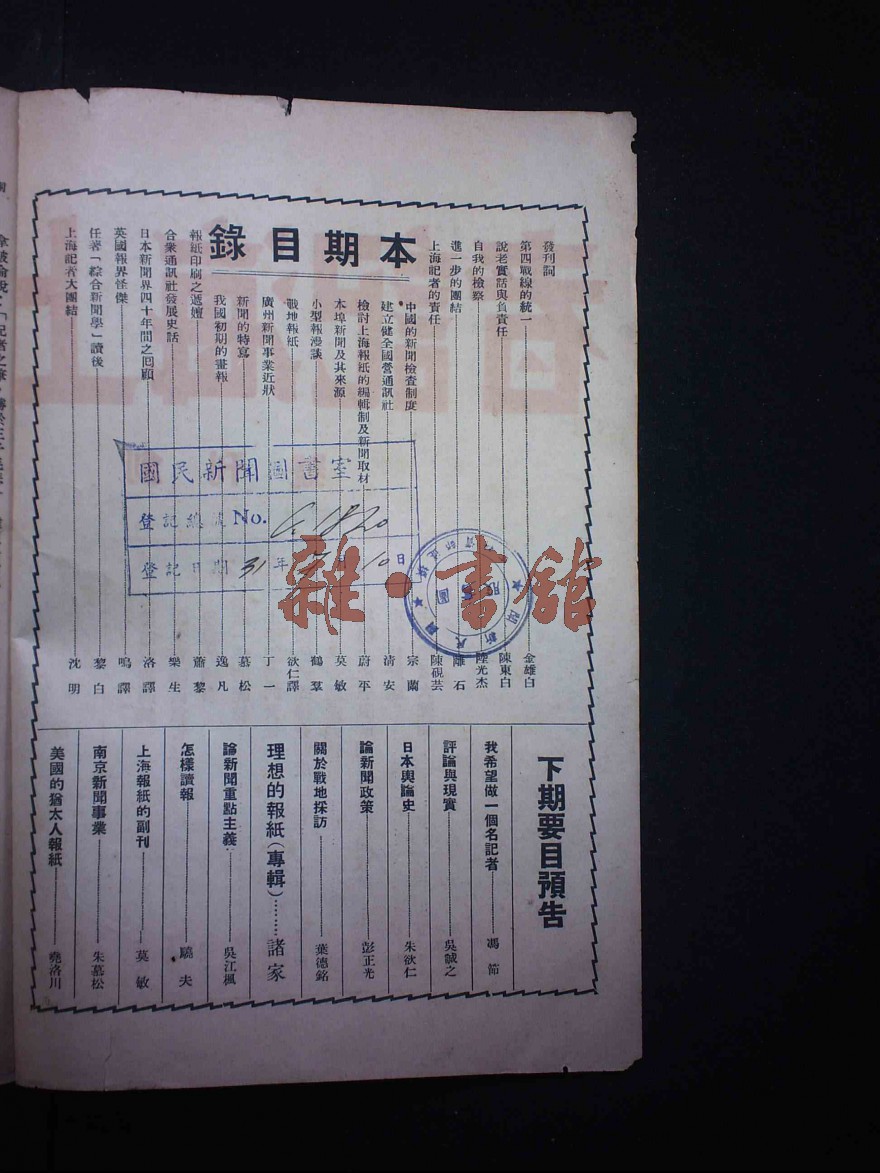 本期目錄
發刊詞
第四戰線的統一……金雄白
說老實話與負責任……陳東白
自我的檢察……陸光杰
進一步的團結……離石
上海記者的責任……陳硯芸
中國的新聞檢查制度……宗蘭
建立健全國營通訊社……清安
檢討上海報紙的編輯制及新聞取材……蔚平
本埠新聞及其來源……英敏
小型報漫談……鶴羣
戰地報紙……欲仁譯
廣州新聞事業近狀……丁一
新聞的特寫……慕松
我國初期的畫報……逸凡
報紙印刷之遞嬗……蕭黎
合衆通訊社發展史話……樂生
日本新聞界四十年間之回顧……洛譯
英國報界怪傑……鳴譯
任著「綜合新聞學」讀後……黎白
上海記者大團結……沈明
下期要目預告
我希望做一個名記者……馮節
評論與現實……吳誠之
日本輿論史……朱欲仁
論新聞政策……彭正光
關於戰地採訪……葉德銘
理想的報紙(專輯)……諸家
論新聞重點主義……吳江楓
怎樣讀報……驍夫
上海報紙的副刊……英敏
南京新聞事業……朱慕松
美國的猶太人報紙……堯洛川
國民新聞圖書室
登記總號 No. G.1820
登記日期 31年 月10日
雜·書館